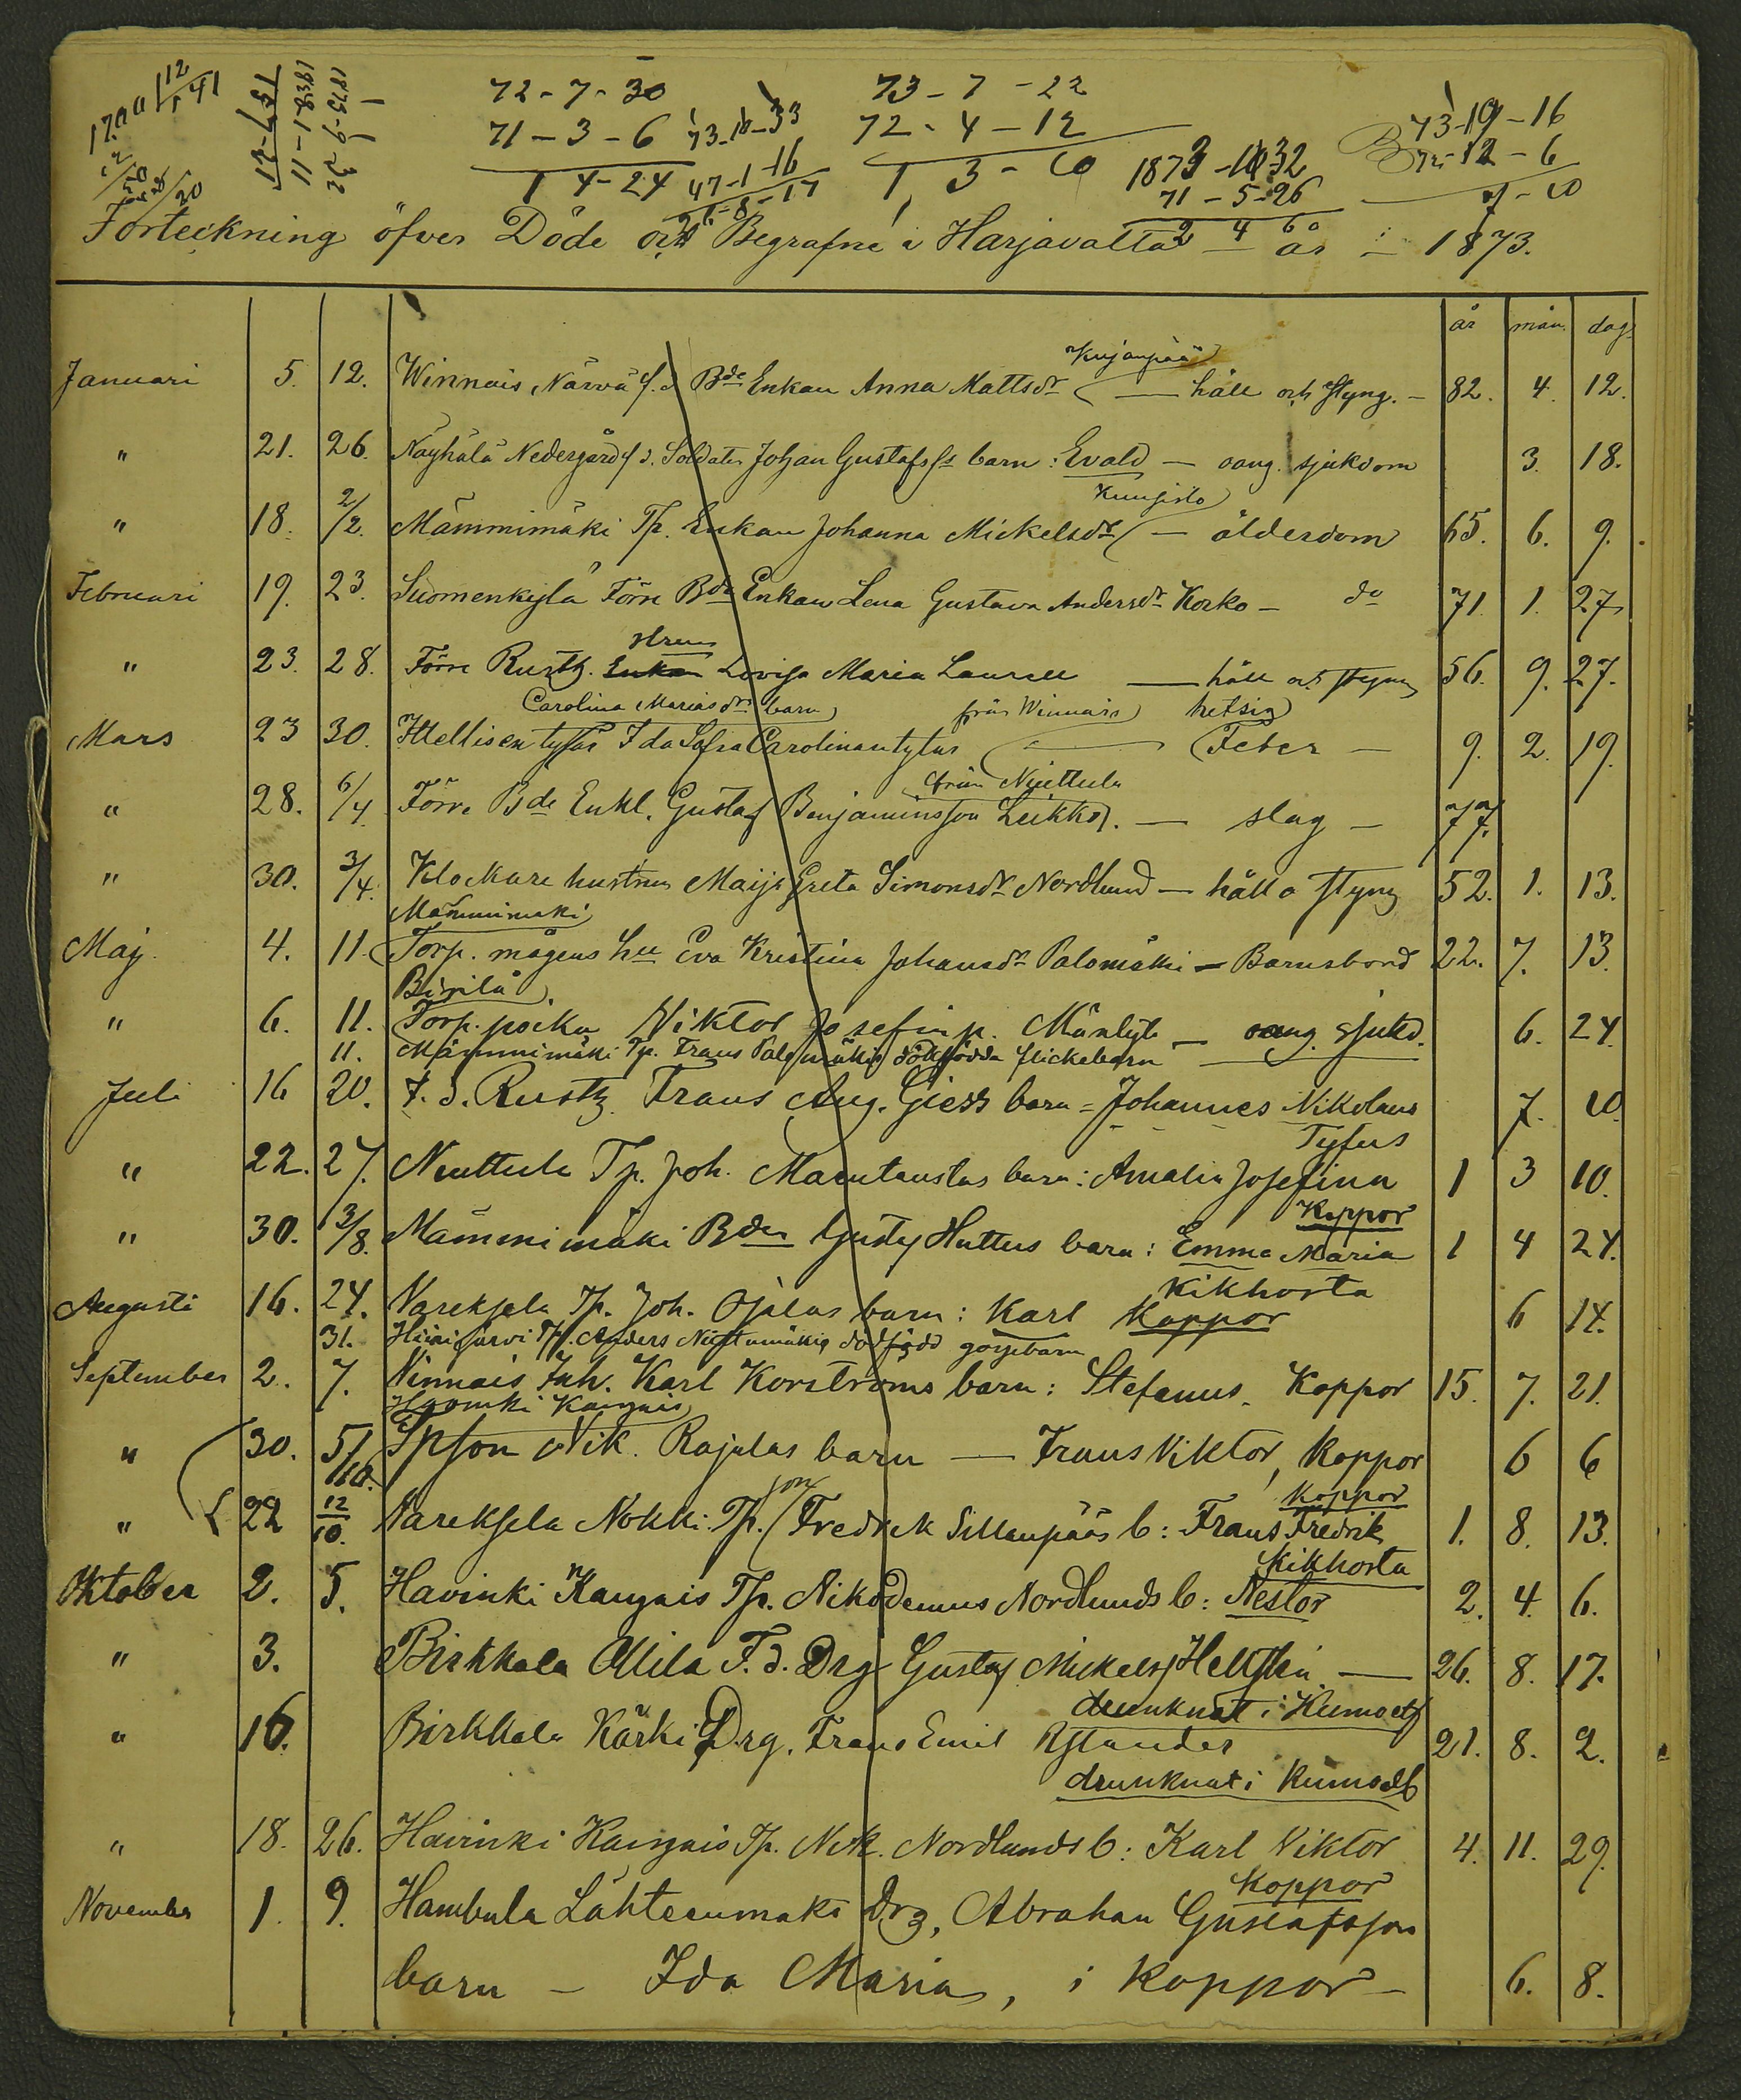 72 - 7 - 30
71 - 3 - 6
1 4 - 24
73 - 10 - 33
47 - 1 - 16
73 - 7 - 22
72 - 4 - 12
1 3 - 10
71 - 5 - 26
2 4 6
73 - 19 - 16
72 - 12 - 6
Förteckning öfver Döde och Begrafne i Harjavalta år 1873.
år mån. dag.
Januari 5. 12. Winnais Närvä f.d. Bde Enkan Anna Mattsdr — håll och styng. — 82. 4. 12.
" 21. 26. Näyhälä Nedergård f.d. Soldaten Johan Gustafss barn: Evald — oang. sjukdom 3. 18.
" 18. 2/2. Mämmimäki Tp. Enkan Johanna Mickelsdr — ålderdom 65. 6. 9.
Februari 19. 23. Suomenkylä Förre Bde Enkan Lena Gustava Andersdr Korko — do 71. 1. 27.
" 23. 28. Förre Rusth. Hrens Lovisa Maria Laurell — håll och styng 56. 9. 27.
Carolina Mariasdrs barn från Winnais hetsig
Mars 23 30. Ida Sofia Carolinantytär Feber — 9. 2. 19.
från Niuttula
" 28. 6/4 Förre Bde Enkl. Gustaf Benjaminsson — slag — 77.
" 30. 3/4. Klockare hustrun Maija Greta Simonsdr Nordlund — håll o styng 52. 1. 13.
Mämmimäki
Maj 4. 11. Torp. mågens hu Eva Kristina Johansdr Palomäki — Barnsbörd 22. 7. 13.
Birilä
" 6. 11. Torp. poika Viktor Josefin p. — oang. sjukd. 6. 24.
11. Mämmimäki Tp. Frans Palomäkis dödfödda flickebarn
Juli 16 20. F.d. Rusth. Frans Aug. Giers barn = Johannes Nikolaus 7. 10.
Tyfus
" 22. 27. Niuttula Tp. Joh. Maentaustas barn: Amalia Josefina 1 3 10.
Koppor
" 30. 3/8. Mämmimäki Bden Gustaf Huttus barn: Emma Maria 1 4 24.
Kikhosta
Augusti 16. 24. Varekylä Tp. Joh. Ojalas barn: Karl Koppor 6 14.
31. Hiirijärvi Tp. Anders dödfödd gossebarn
September 2. 7. Vinnais Inh. Karl Korströms barn: Stefanus. Koppor 15. 7. 21.
Havinki Kangais
" 30. 5/10. Tpson Nik. Rajalas barn — Frans Viktor, Koppor 6 6
son Koppor
" 22 12/10. Varekylä Nokki Tp. Fredrik Sillanpääs b: Frans Fredrik 1. 8. 13.
Kikhosta
Oktober 2. 5. Havinki Kangais Tp. Nikodemus Nordlunds b: Nestor 2. 4. 6.
" 3. Birkkala Ollila F.d. Drg Gustaf Mickelss Hellsten — 26. 8. 17.
drunknat i Kumo elf
" 16. Birkkala Kärki Drg. Frans Emil 21. 8. 2.
drunknat i Kumo elf
" 18. 26. Havinki Kangais Tp. Nik. Nordlunds b: Karl Viktor 4. 11. 29.
Koppor
November 1. 9. Hambula Lähteenmäki Drg. Abraham Gustafsson
barn — Ida Maria, i koppor — 6. 8.